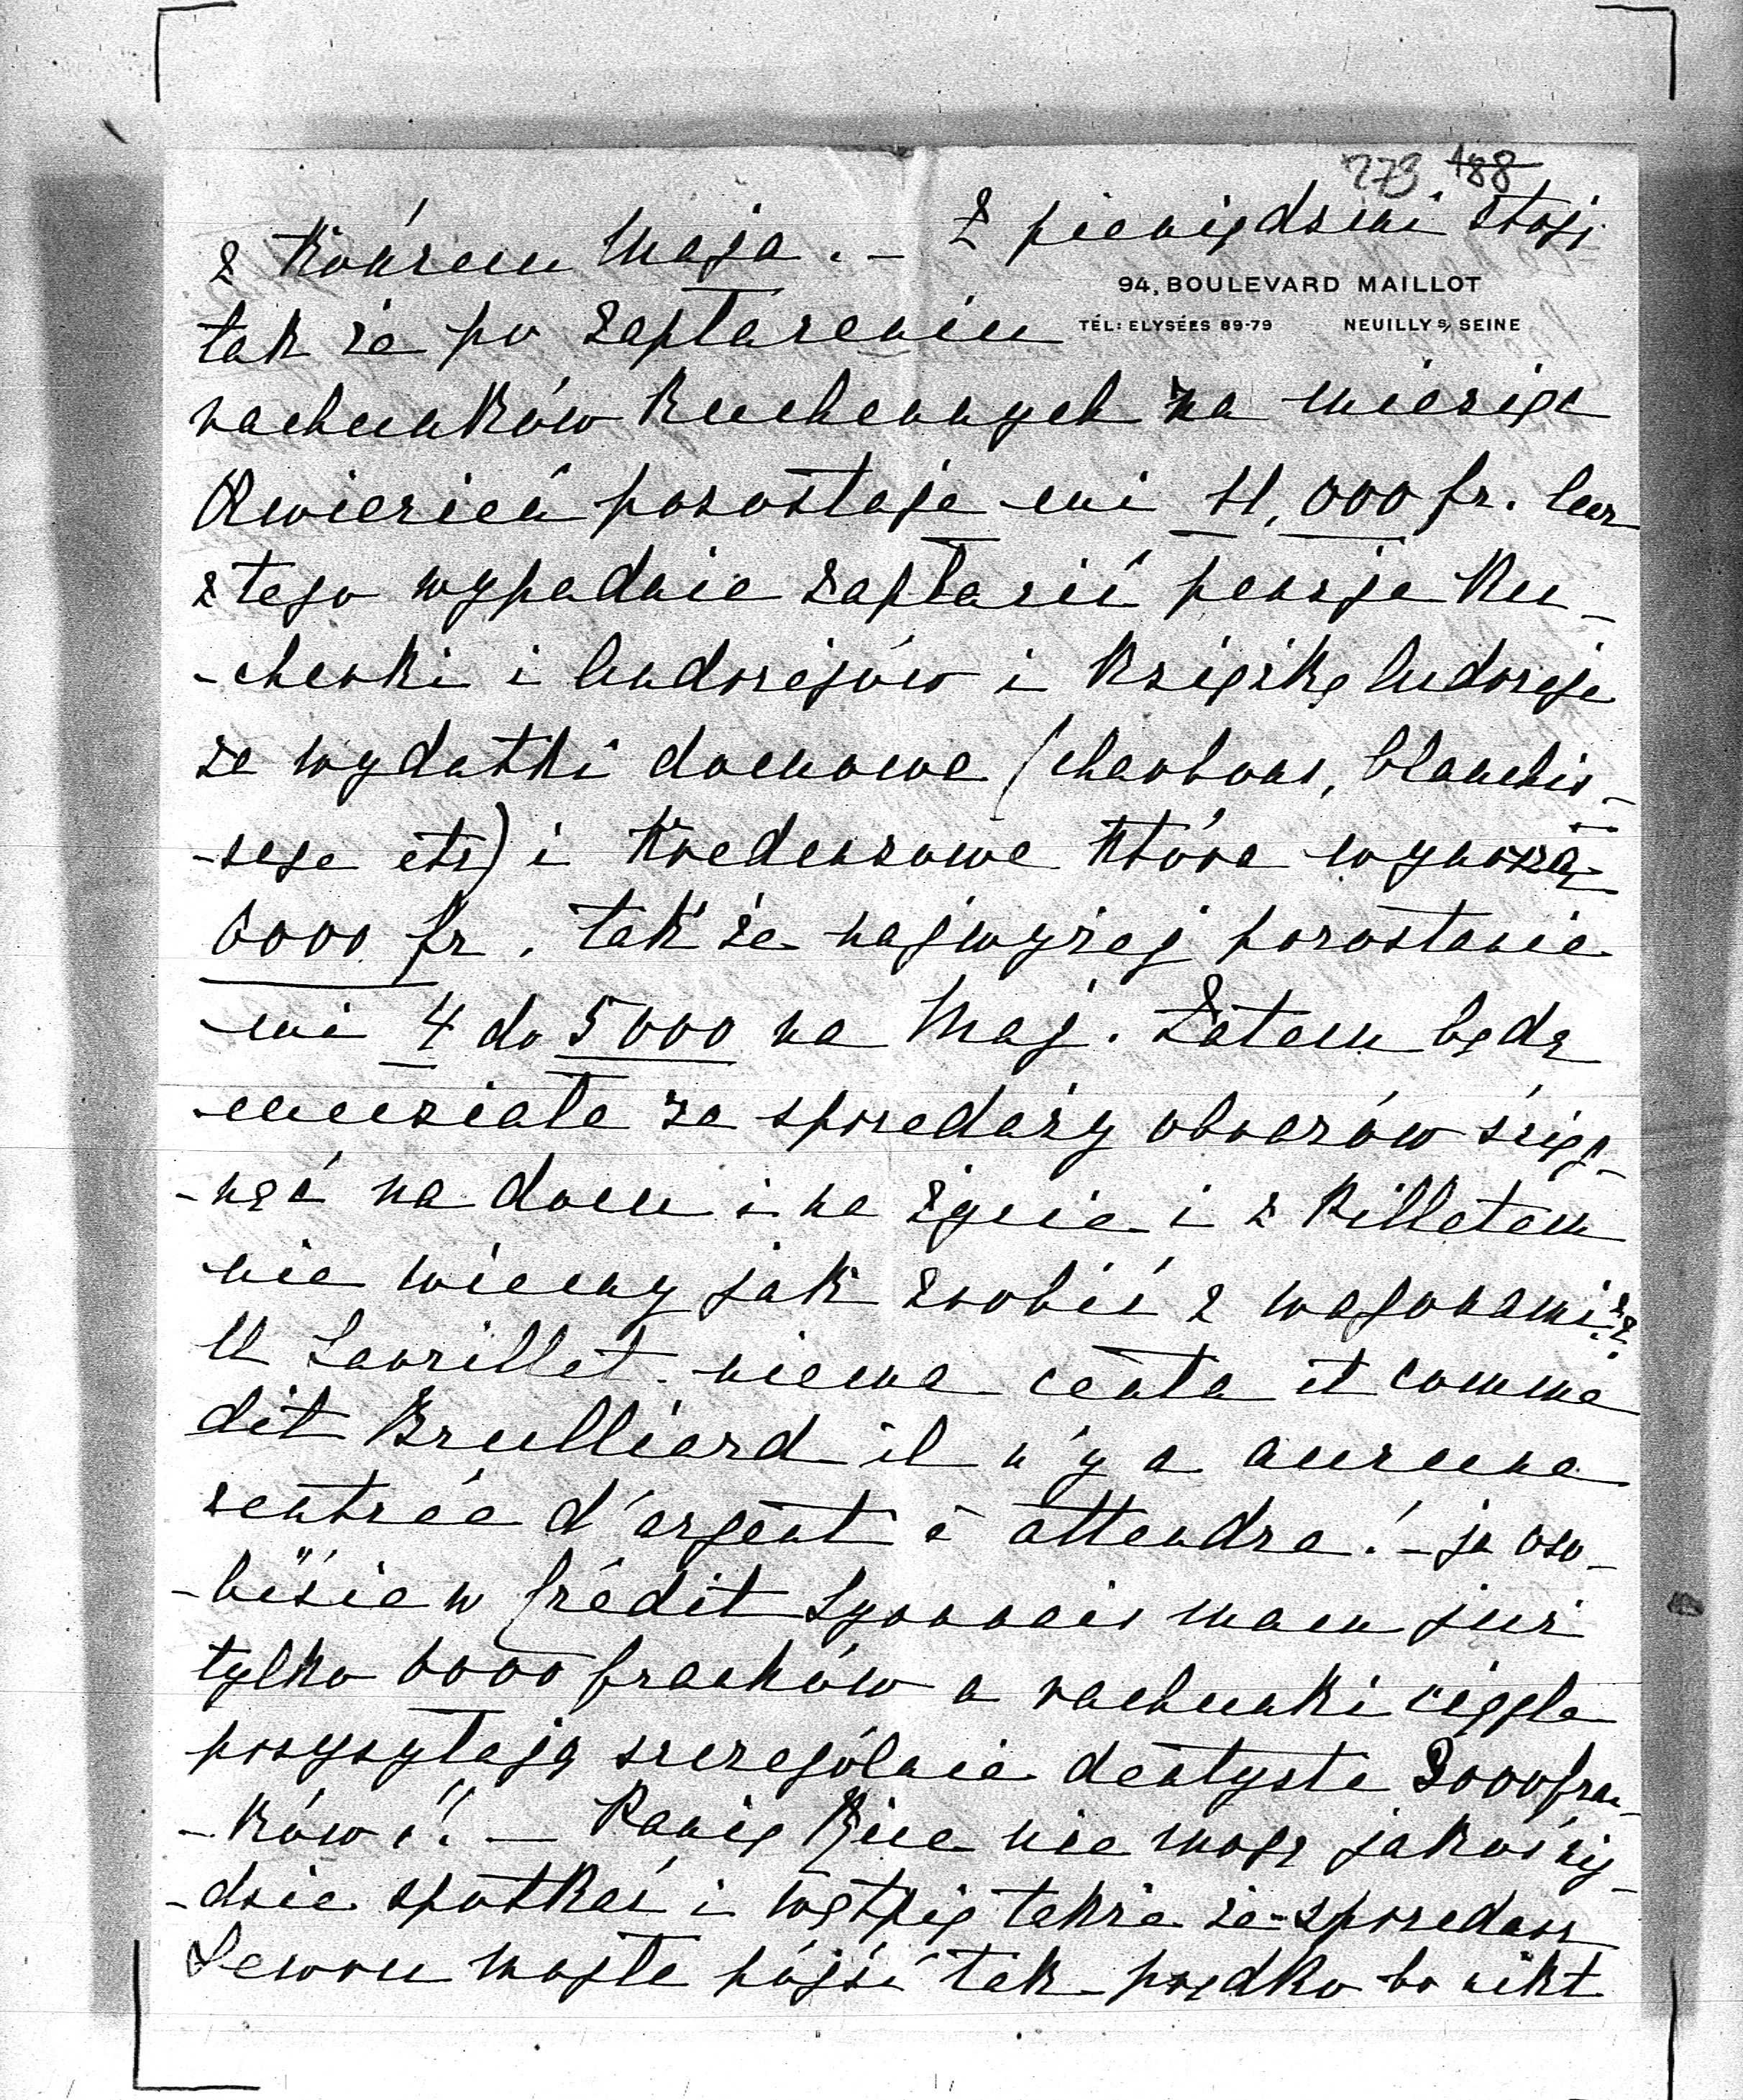 273 188
z końcem Maja. – Z pieniędzmi stoję
94, BOULEVARD MAILLOT
TÉL: ELYSÉES 89-79 NEUILLY S/ SEINE
tak że po zapłaceniu
rachunków kuchennych za miesiąc
Kwiecień pozostaje mi 11,000 fr. lecz
z tego wypadnie zapłacić pensje ku-
-chenki i ludorejów i książkę ludoreje
za wydatki domowe (charbons, blanchis-
-sage etc) i kredensowe które wynoszą
6000 fr. tak że najwyżej pozostanie
mi 4 do 5000 na Maj. Zatem będę
musiała za sprzedaży obrazów sięg-
-nąć na dom i na życie i z Rilletem
nie wiemy jak zrobić z wagonami??
U Lavrillet niema centa et comme
dit Brulliard il n'y a aucune
rentrée d'argent à attendre! – ja oso-
-biście w Crédit Lyonnais mam już
tylko 6000 franków a rachunki ciągle
przysyłają szczególnie dentysta 3000 fran-
-ków!! – Panią nie mogę jakoś nig-
-dzie spotkać i wątpię także że sprzedaż
mogła pójść tak prędko bo nikt